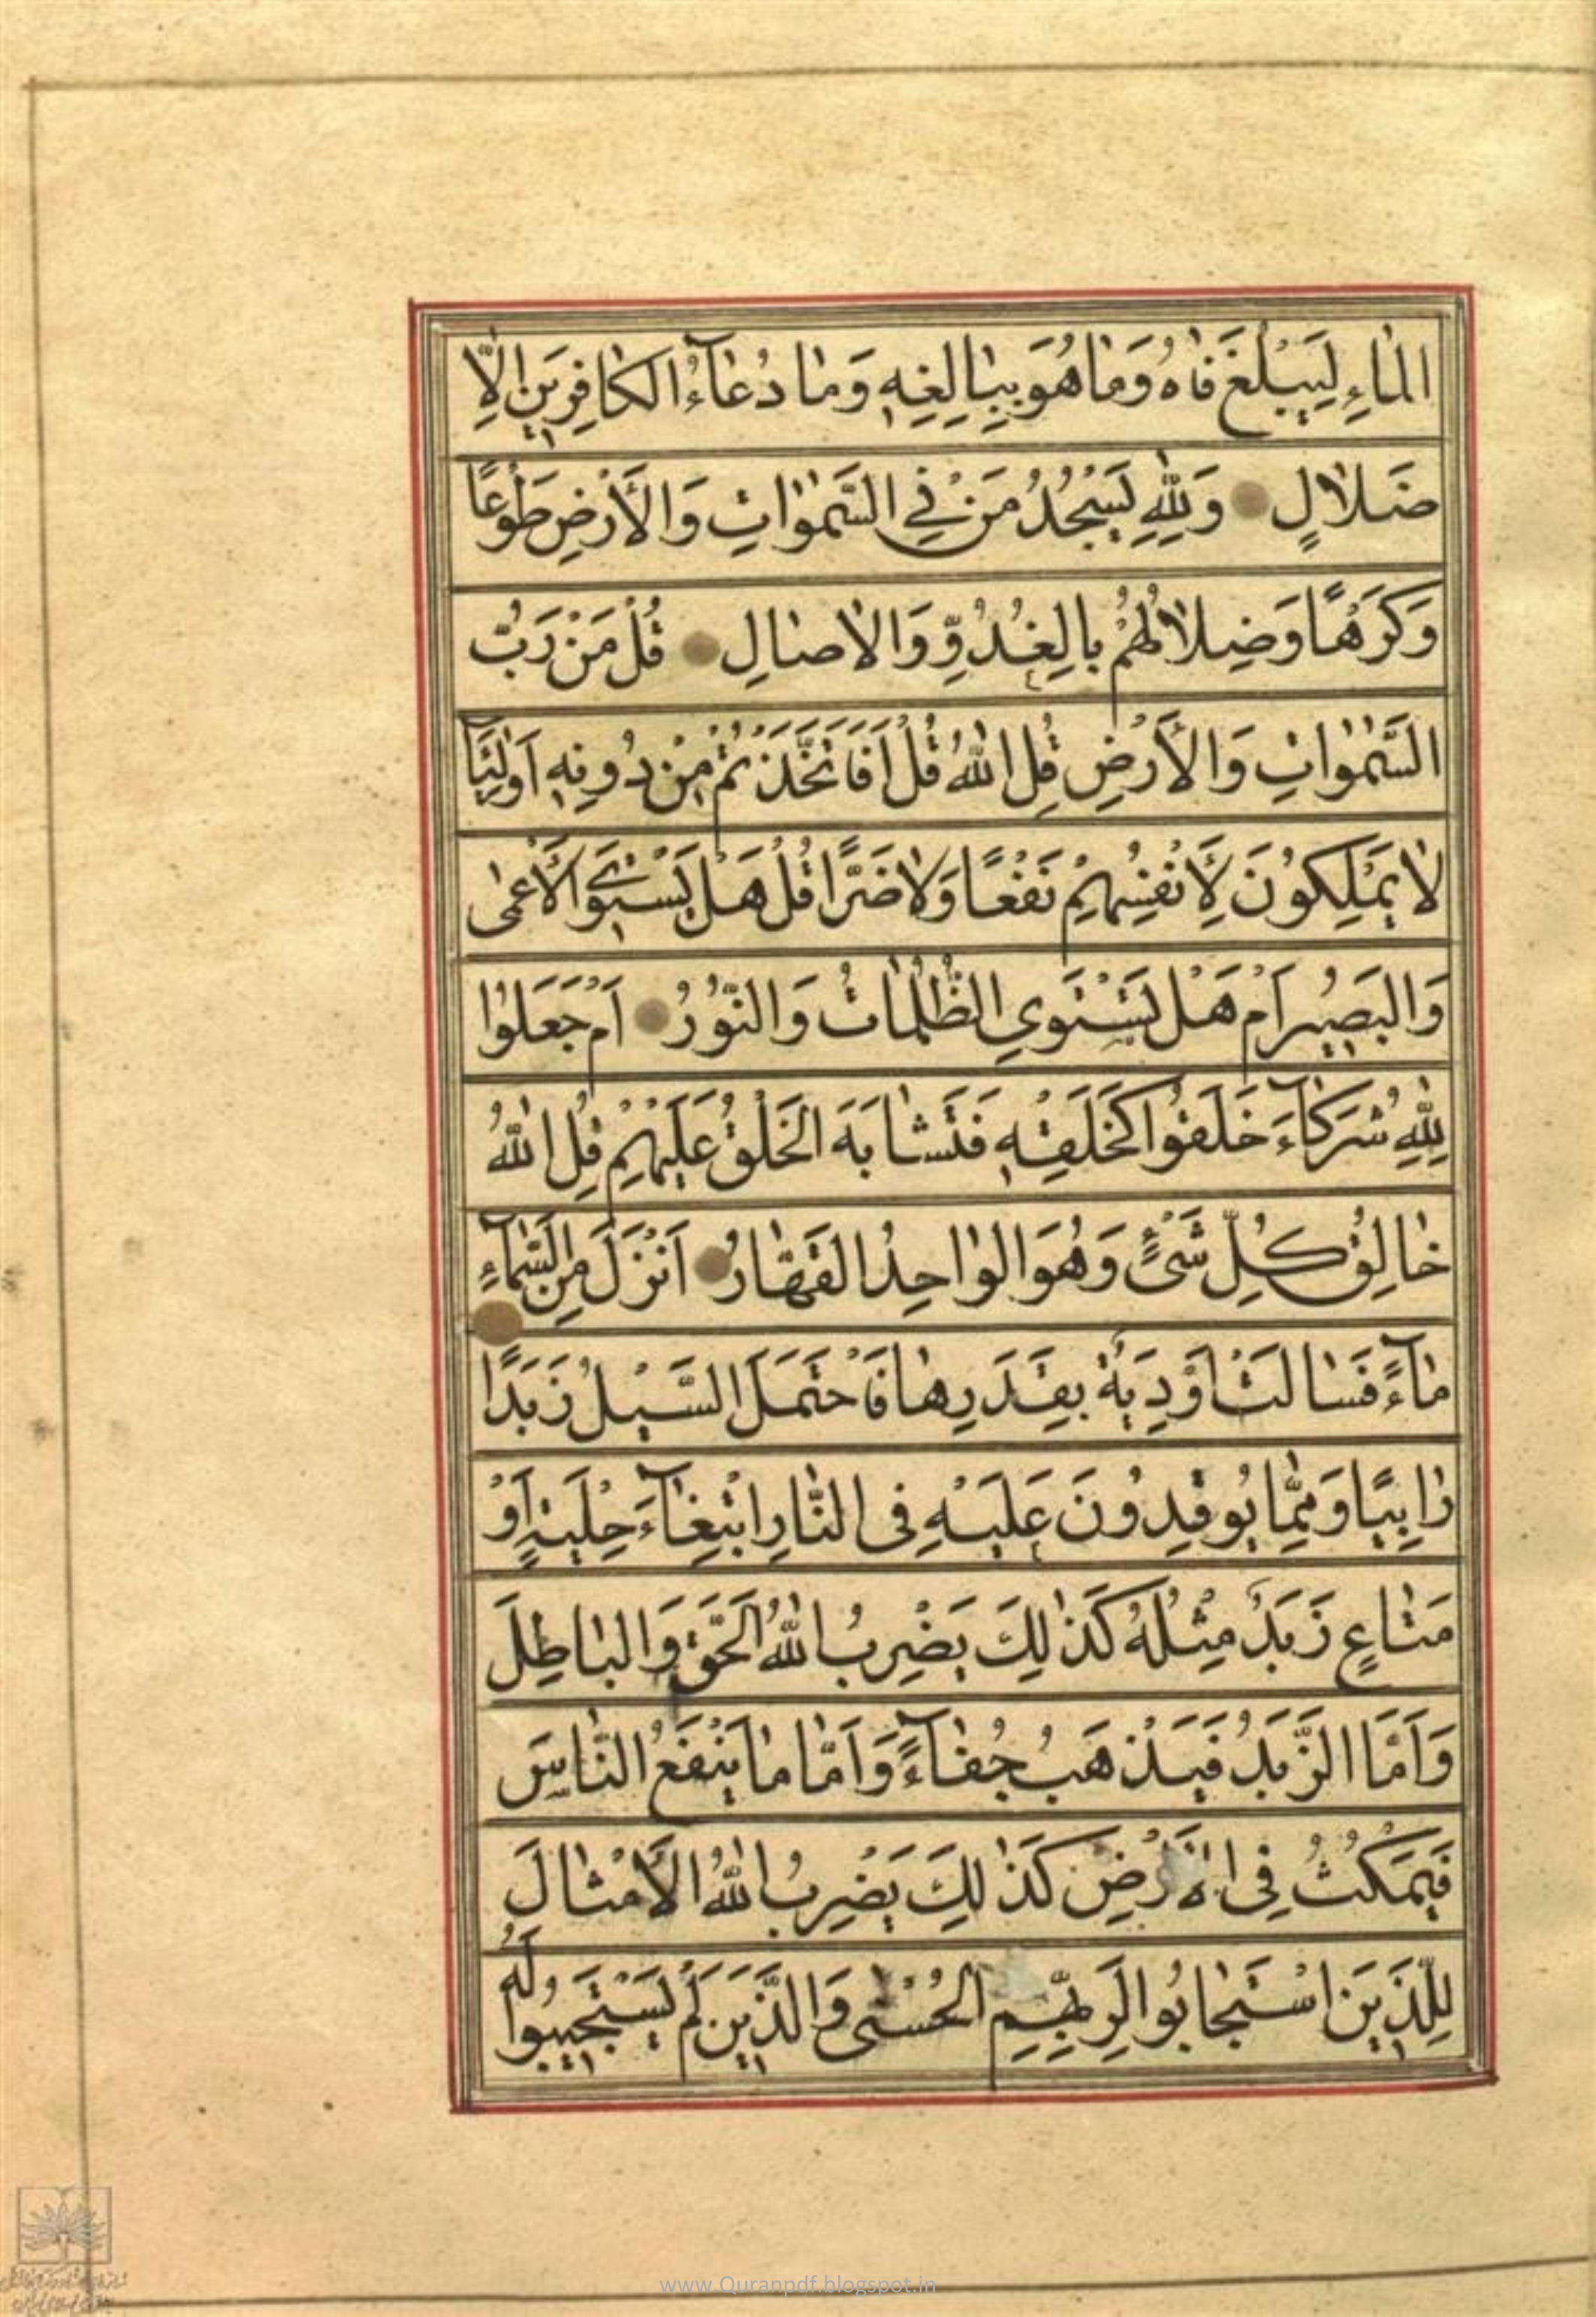 الماءِ لِيَبْلُغَ فاهُ وَما هُوَ بِبالِغِهِ وَما دُعآءُ الكافِرينَ اِلّا
ضَلالٍ وَلِلّهِ يَسْجُدُ مَنْ فِي السَّمٰواتِ وَالأَرْضِ طَوْعًا
وَكَرْهًا وَضِلالُهُمْ بِالغُدُوِّ وَالاصالِ قُلْ مَنْ رَبُّ
السَّمٰواتِ وَالأَرْضِ قُلِ اللهُ قُلْ اَفَاتَّخَذْتُمْ مِنْ دُونِهِ اَوْلِيَآ
لا يَمْلِكُونَ لِأَنْفُسِهِمْ نَفْعًا وَلا ضَرًّا قُلْ هَلْ يَسْتَوِي الأَعْمٰى
وَالبَصيرُ اَمْ هَلْ تَسْتَوِي الظُّلُماتُ وَالنُّورُ اَمْ جَعَلُوا
لِلّهِ شُرَكآءَ خَلَقُوا كَخَلْقِهِ فَتَشابَهَ الخَلْقُ عَلَيْهِمْ قُلِ اللهُ
خالِقُ كُلِّ شَيْءٍ وَهُوَ الواحِدُ القَهّارُ اَنْزَلَ مِنَ السَّمآءِ
مآءً فَسالَتْ اَوْدِيَةٌ بِقَدَرِها فَاحْتَمَلَ السَّيْلُ زَبَدًا
رابِيًا وَمِمّا يُوقِدُونَ عَلَيْهِ فِى النّارِ ابْتِغآءَ حِلْيَةٍ اَوْ
مَتاعٍ زَبَدٌ مِثْلُهُ كَذٰلِكَ يَضْرِبُ اللهُ الحَقَّ وَالباطِلَ
وَاَمَّا الزَّبَدُ فَيَذْهَبُ جُفآءً وَاَمّا ما يَنْفَعُ النّاسَ
فَيَمْكُثُ فِى الأَرْضِ كَذٰلِكَ يَضْرِبُ اللهُ الأَمْثالَ
لِلَّذينَ اسْتَجابُوا لِرَبِّهِمِ الحُسْنٰى وَالَّذينَ لَمْ يَسْتَجيبُوا لَهُ
www.Quranpdf.blogspot.in